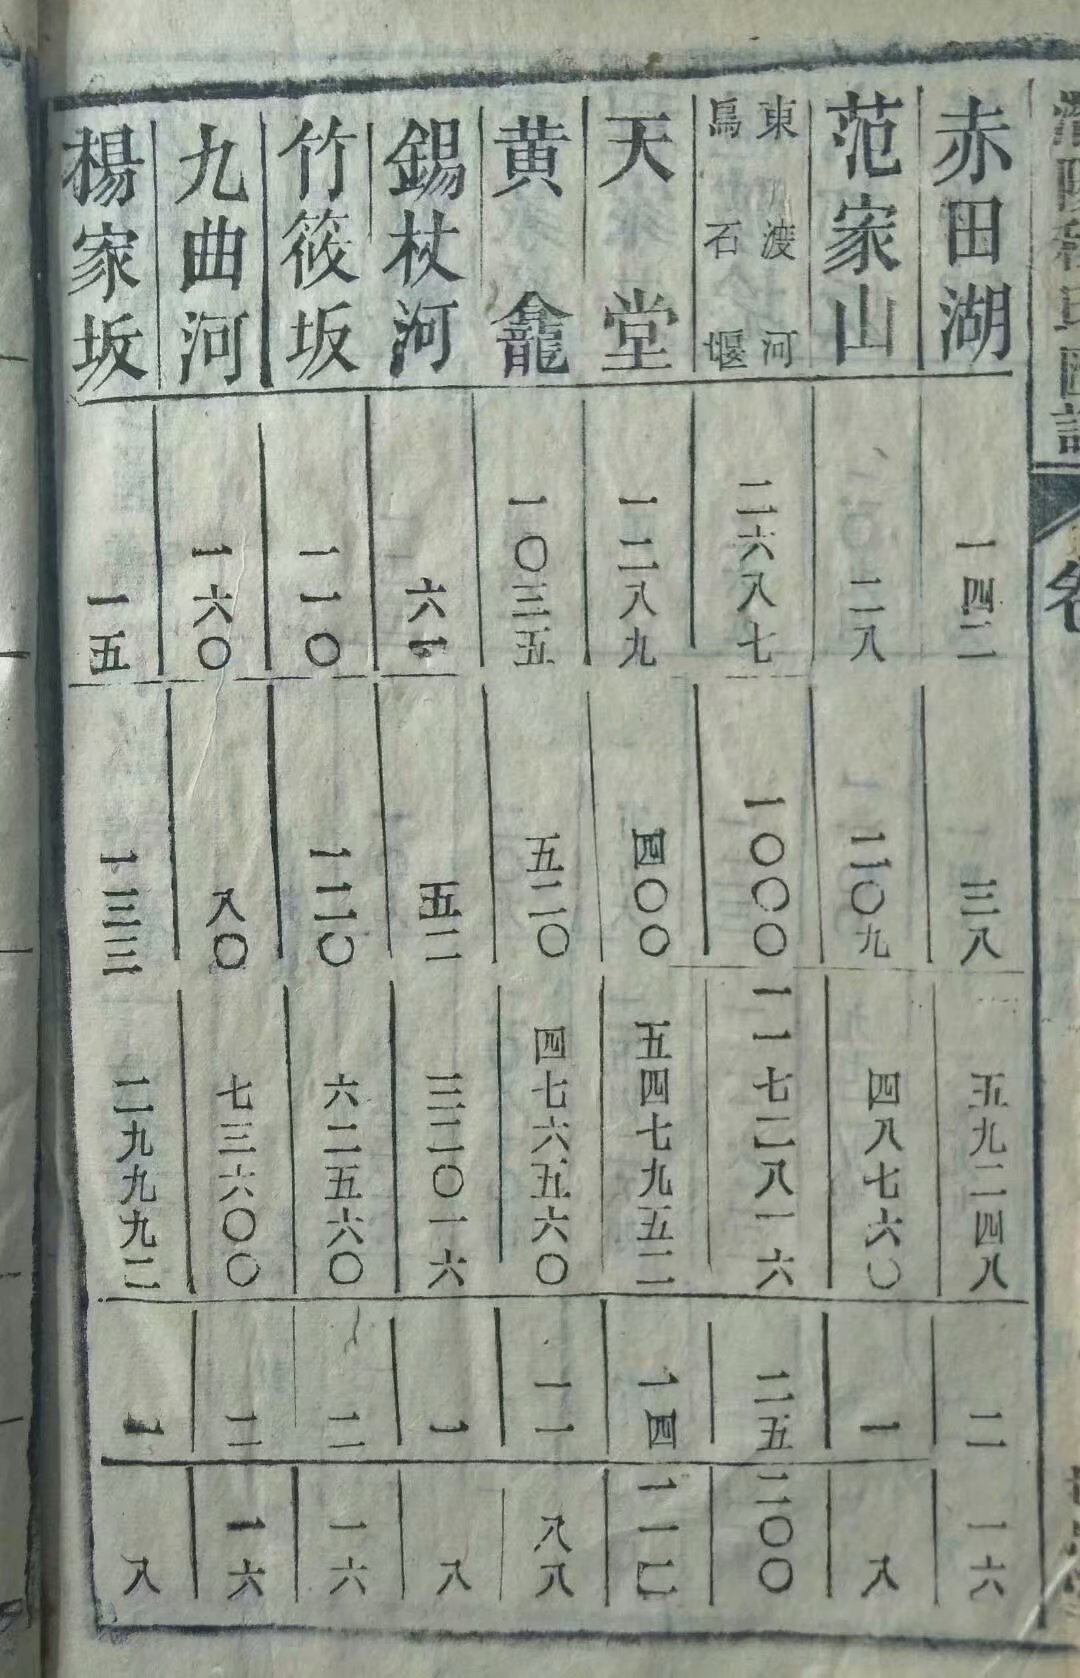 赤田湖 一四二 三八 五九二四八 二 一六
范家山 二八 二二〇九 四八七六〇 一 八
東渡河 烏石堰 二六八七 一〇〇〇 一一七二八一六 二五 二〇〇
天堂 一二八九 四〇〇 五四七九五二 一四 一一二
黄龕 一〇三五 五二〇 四七六五六〇 一一 八八
錫杖河 六一 五二 三二〇一六 一 八
竹筱坂 一一〇 一二〇 六二五六〇 二 一六
九曲河 一六〇 八〇 七三六〇〇 二 一六
楊家坂 一五 一三三 二九九九二 一 八